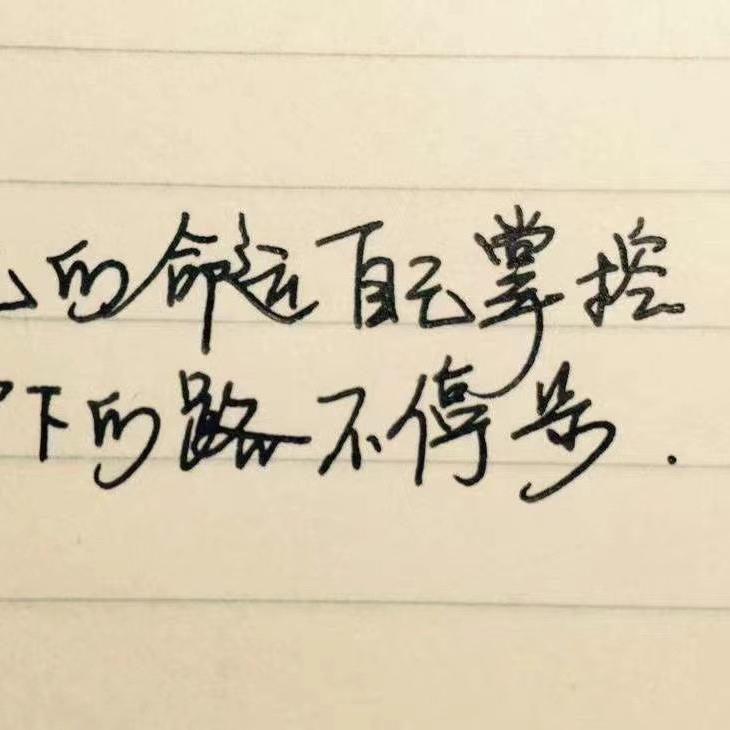 的命运自己掌控
下的路不停步.